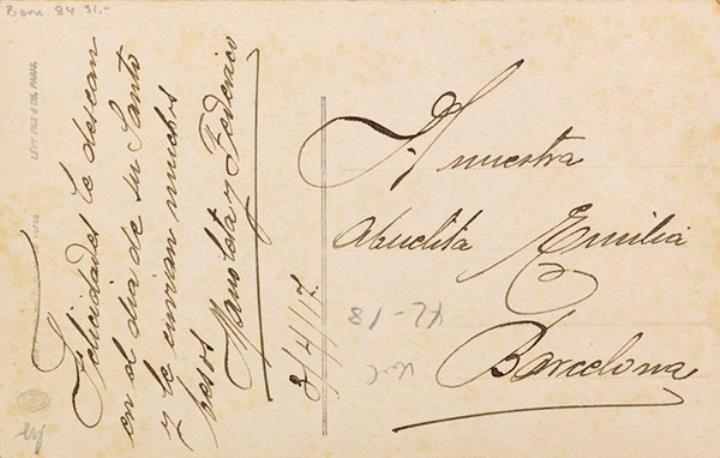 Barc. 84 31.-
Felicidades le desean
en el dia de su Santo
y le envian muchos
besos
Manolita y Federico
3/4/17.
LEVY FILS & CIE PARIS
A nuestra
Abuelita Emilia
Barcelona